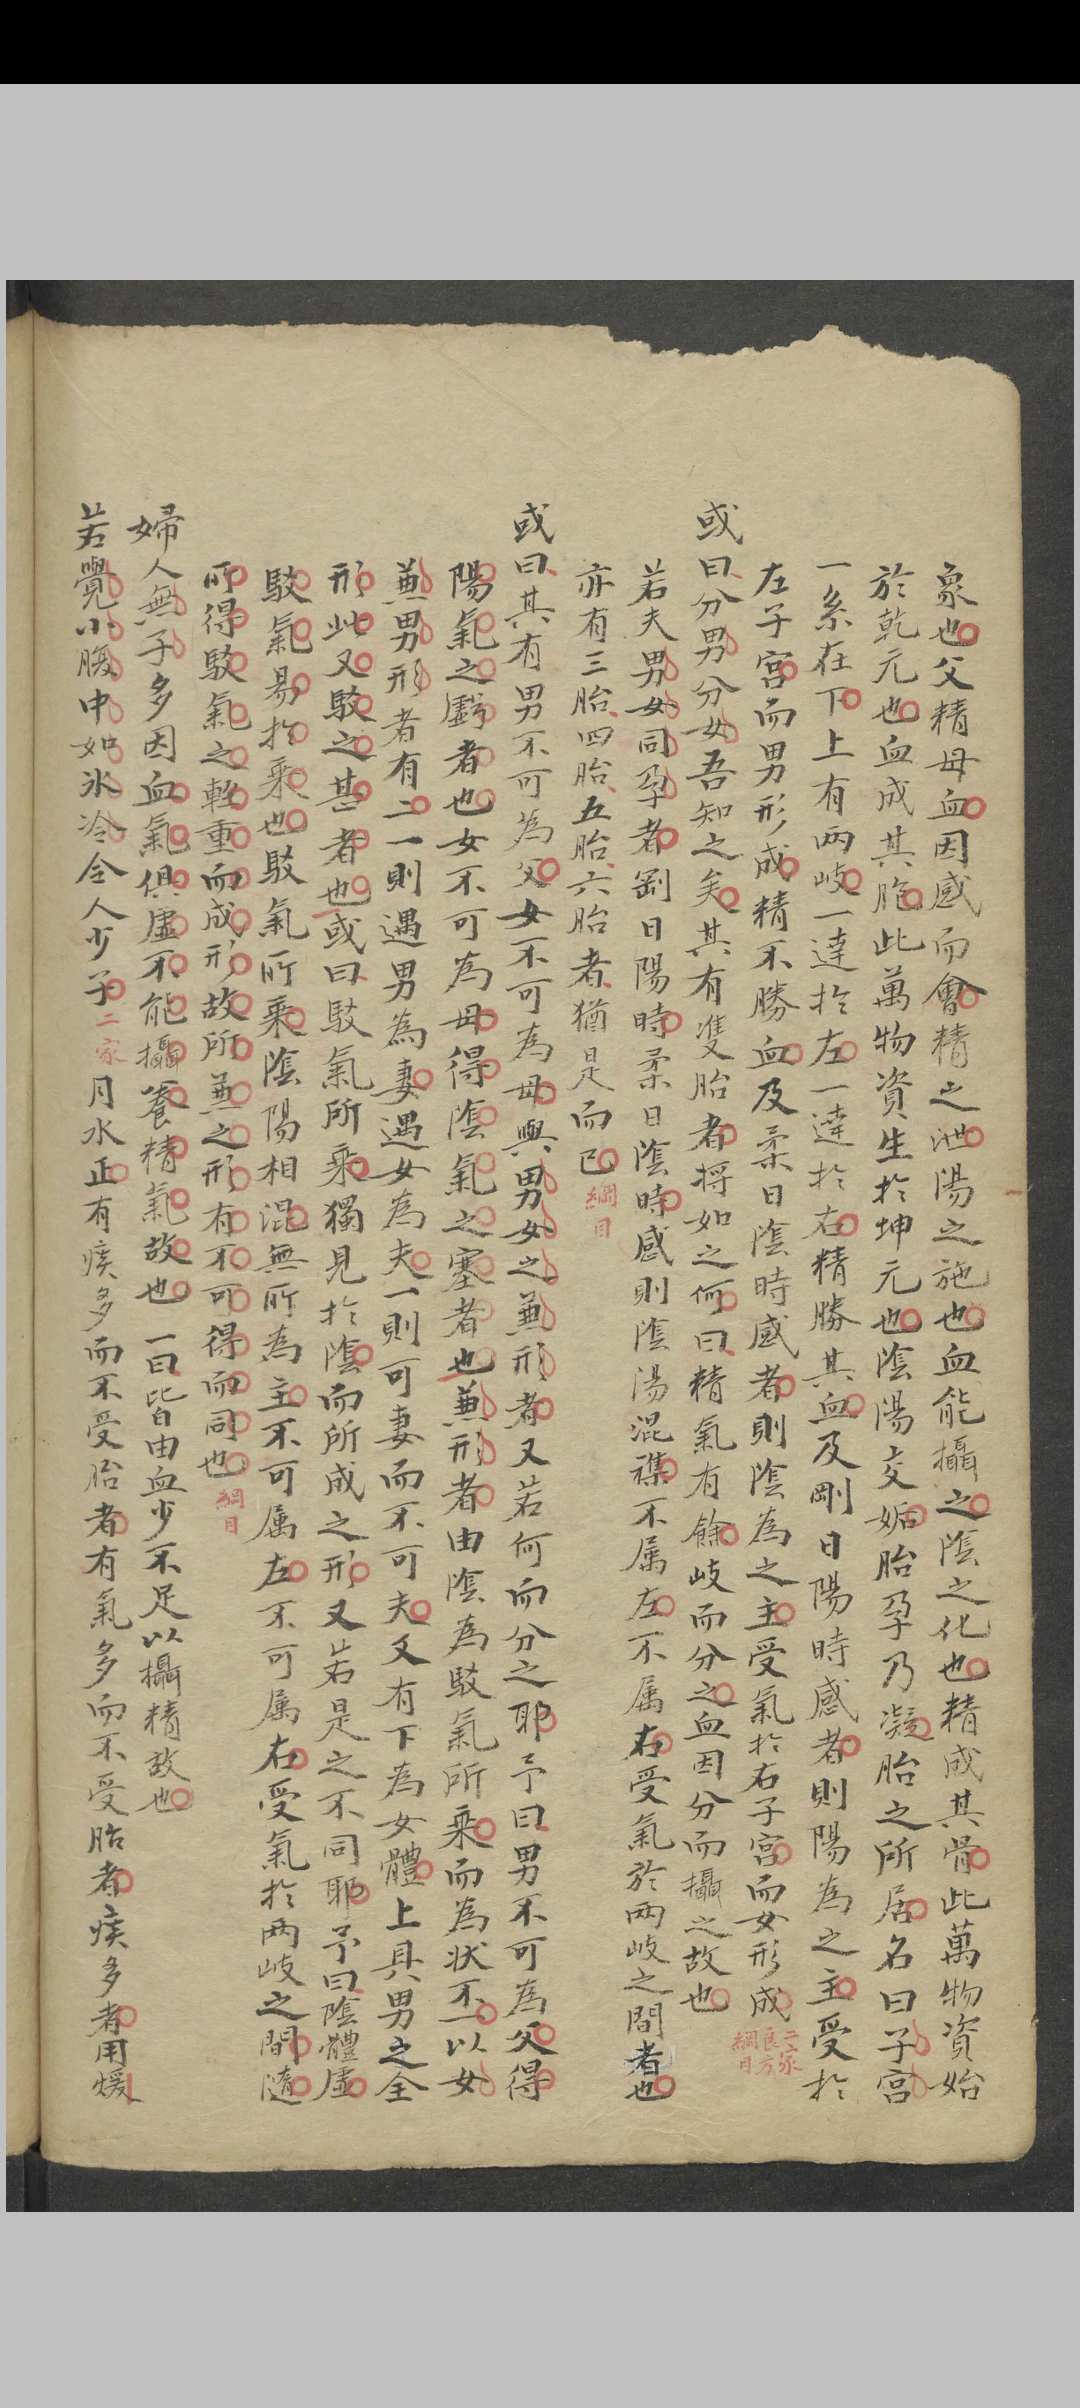 象也父精母血因感而會精之泄陽之施也血能攝之陰之化也精成其骨此萬物資始
於乾元也血成其胞此萬物資生於坤元也陰陽交姤胎孕乃凝胎之所居名曰子宮
一系在下上有两岐一達於左一達於右精勝其血及剛日陽時感者則陽為之主受於
左子宮而男形成精不勝血及柔日陰時感者則陰為之主受氣於右子宮而女形成二家良方綱目
或曰分男分女吾知之矣其有隻胎者将如之何曰精氣有餘岐而分之血因分而攝之故也
若夫男女同孕者剛日陽時柔日陰時感則陰湯混襍不属左不属右受氣於両岐之間者也
亦有三胎四胎五胎六胎者猶是而已綱目
或曰其有男不可為父女不可為母與男女之兼形者又若何而分之耶予曰男不可為父得
陽氣之虧者也女不可為母得陰氣之塞者也兼形者由陰為駁氣所乗而為状不一以女
兼男形者有二一則遇男為妻遇女為夫一則可妻而不可夫又有下為女體上具男之全
形此又駁之甚者也或曰駁氣所乗獨見於陰而所成之形又若是之不同耶予曰陰體虛
駁氣易於乗也駁氣所乗陰陽相混無所為主不可属左不可属右受氣於両岐之間隨
所得駁氣之軽重而成形故所兼之形有不可得而同也綱目
婦人無子多因血氣俱虛不能攝養精氣故也 一曰皆由血少不足以攝精故也
若覺小腹中如氷冷令人少子二家月水正有痰多而不受胎者有氣多而不受胎者痰多者用煖